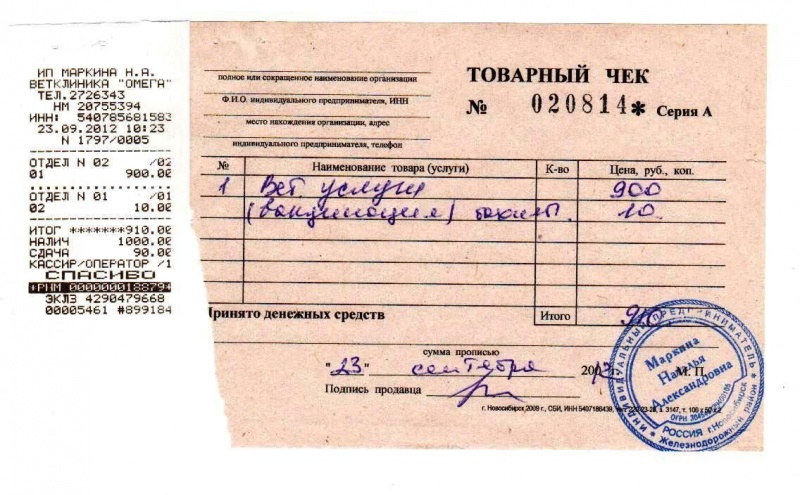 ИП МАРКИНА Н.А.
ВЕТКЛИНИКА "ОМЕГА"
ТЕЛ.2726343
НМ 20755394
ИНН: 540785681583
23.09.2012 10:23
N 1797/0005
ОТДЕЛ N 02 /02
01 900.00
ОТДЕЛ N 01 /01
02 10.00
ИТОГ *******910.00
НАЛИЧ 1000.00
СДАЧА 90.00
КАССИР/ОПЕРАТОР /1
СПАСИБО
*РНМ 000000018879*
ЭКЛЗ 4290479668
00005461 #899184
полное или сокращенное наименование организации
Ф.И.О. индивидуального предпринимателя, ИНН
место нахождения организации, адрес
индивидуального предпринимателя, телефон
ТОВАРНЫЙ ЧЕК
№ 020814* Серия А
№ Наименование товара (услуги) К-во Цена, руб., коп.
1 Вет услуги 900
(вакцинация) бахилы. 10
Принято денежных средств Итого 910
сумма прописью
"23" сентября 2012 г. М.П.
Подпись продавца
г. Новосибирск 2009 г., СБИ, ИНН 5407188439
ИНДИВИДУАЛЬНЫЙ ПРЕДПРИНИМАТЕЛЬ
Маркина
Наталья
Александровна
ОГРН
РОССИЯ г.Новосибирск
Железнодорожный район